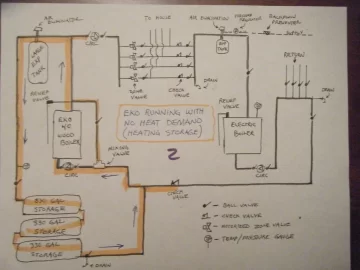 AIR ELIMINATOR
TO HOUSE
AIR ELIMINATOR
CIRC
LARGE
EXP
TANK
EXP
TANK
DRAIN
RETURN
RELIEF
VALVE
ZONE
VALVE
CHECK
VALVE
RELIEF
VALVE
DRAIN
EKO
WOOD
BOILER
EKO RUNNING WITH
NO HEAT DEMAND
(HEATING STORAGE)
ELECTRIC
BOILER
CIRC
MIXING
VALVE
2
CIRC
CHECK
VALVE
GAL
STORAGE
330 GAL
STORAGE
330 GAL
STORAGE
- BALL VALVE
- CHECK VALVE
- MOTORIZED ZONE VALVE
- TEMP/PRESSURE GAUGE